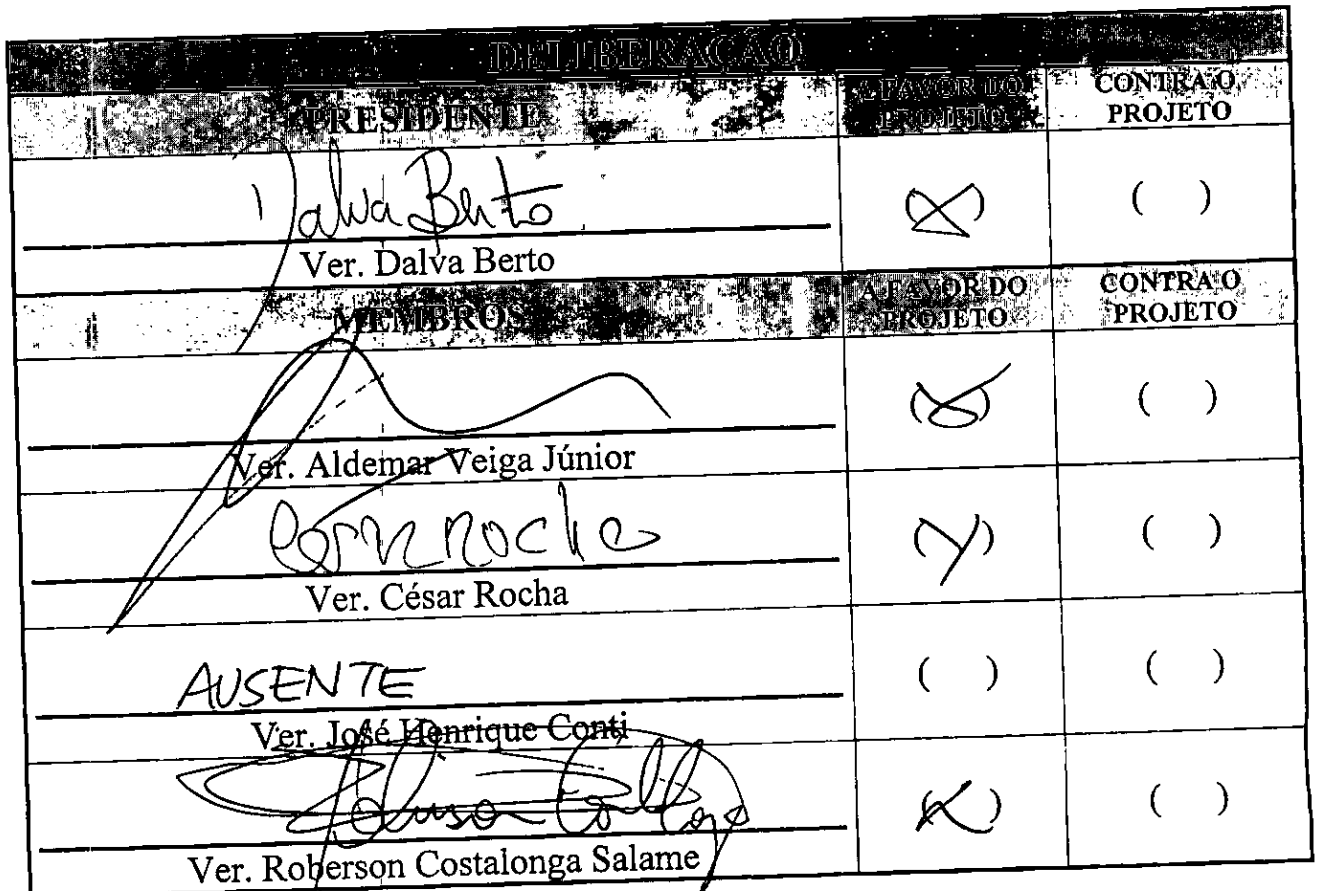 DELIBERAÇÃO
PRESIDENTE A FAVOR DO PROJETO CONTRA O PROJETO
Dalva Berto (X) ( )
Ver. Dalva Berto
MEMBROS A FAVOR DO PROJETO CONTRA O PROJETO
(X) ( )
Ver. Aldemar Veiga Júnior
César Rocha (X) ( )
Ver. César Rocha
AUSENTE ( ) ( )
Ver. José Henrique Conti
(X) ( )
Ver. Roberson Costalonga Salame